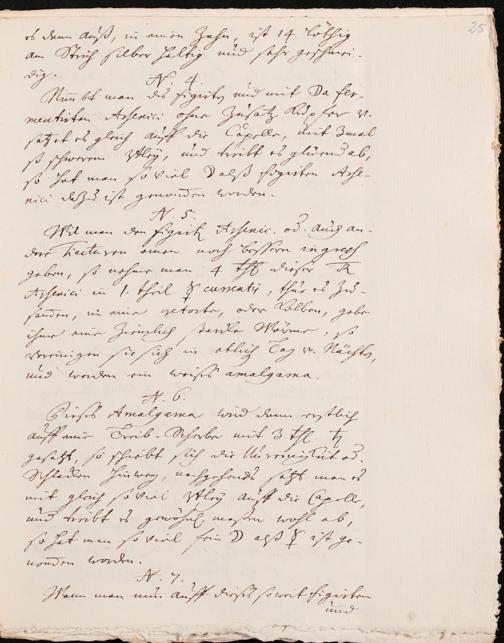 25
es dann auß, in einen Zahn, ist 14 löthig
am Strich silber haltig und sehr geschmei-
dig.
N. 4.
Nimbt man des figirten und mit Da fer-
mentirten Arsenici ohne Zusatz Kupfer v.
setzet es gleich auff die Capelle, mit 3 mal
so schwerem Bley, und treibt es glüend ab,
so hat man so viel D alß figirten Arse-
nici dazu ist genommen worden.
N. 5.
Will man den figirten Arsenic. od. auch an-
dere Tincturen einen noch bessern ingreß
geben, so nehme man 4 thl dieser
Arsenici in 1. theil ☿ currentis, thue es zu-
sammen, in eine retorte, oder Kolben, gebe
ihme eine ziemlich starcke Wärme, so
vereinigen sie sich in etlich Tag v. Nächte,
und werden ein weißes amalgama.
N. 6.
Dieses Amalgama wird dann erstlich
auff eine Treib-Scherbe mit 3 thl ♄
gesetzt, so schiebt sich die Unreinigkeit od.
Schlacken hinweg, nachgehends setzt man es
mit gleich so viel Bley auff die Capelle,
und treibt es gewöhnl. maßen wohl ab,
so hat man so viel fein D alß ☿ ist ge-
nommen worden.
N. 7.
Wann man nun auff dieses so weit figirten
und